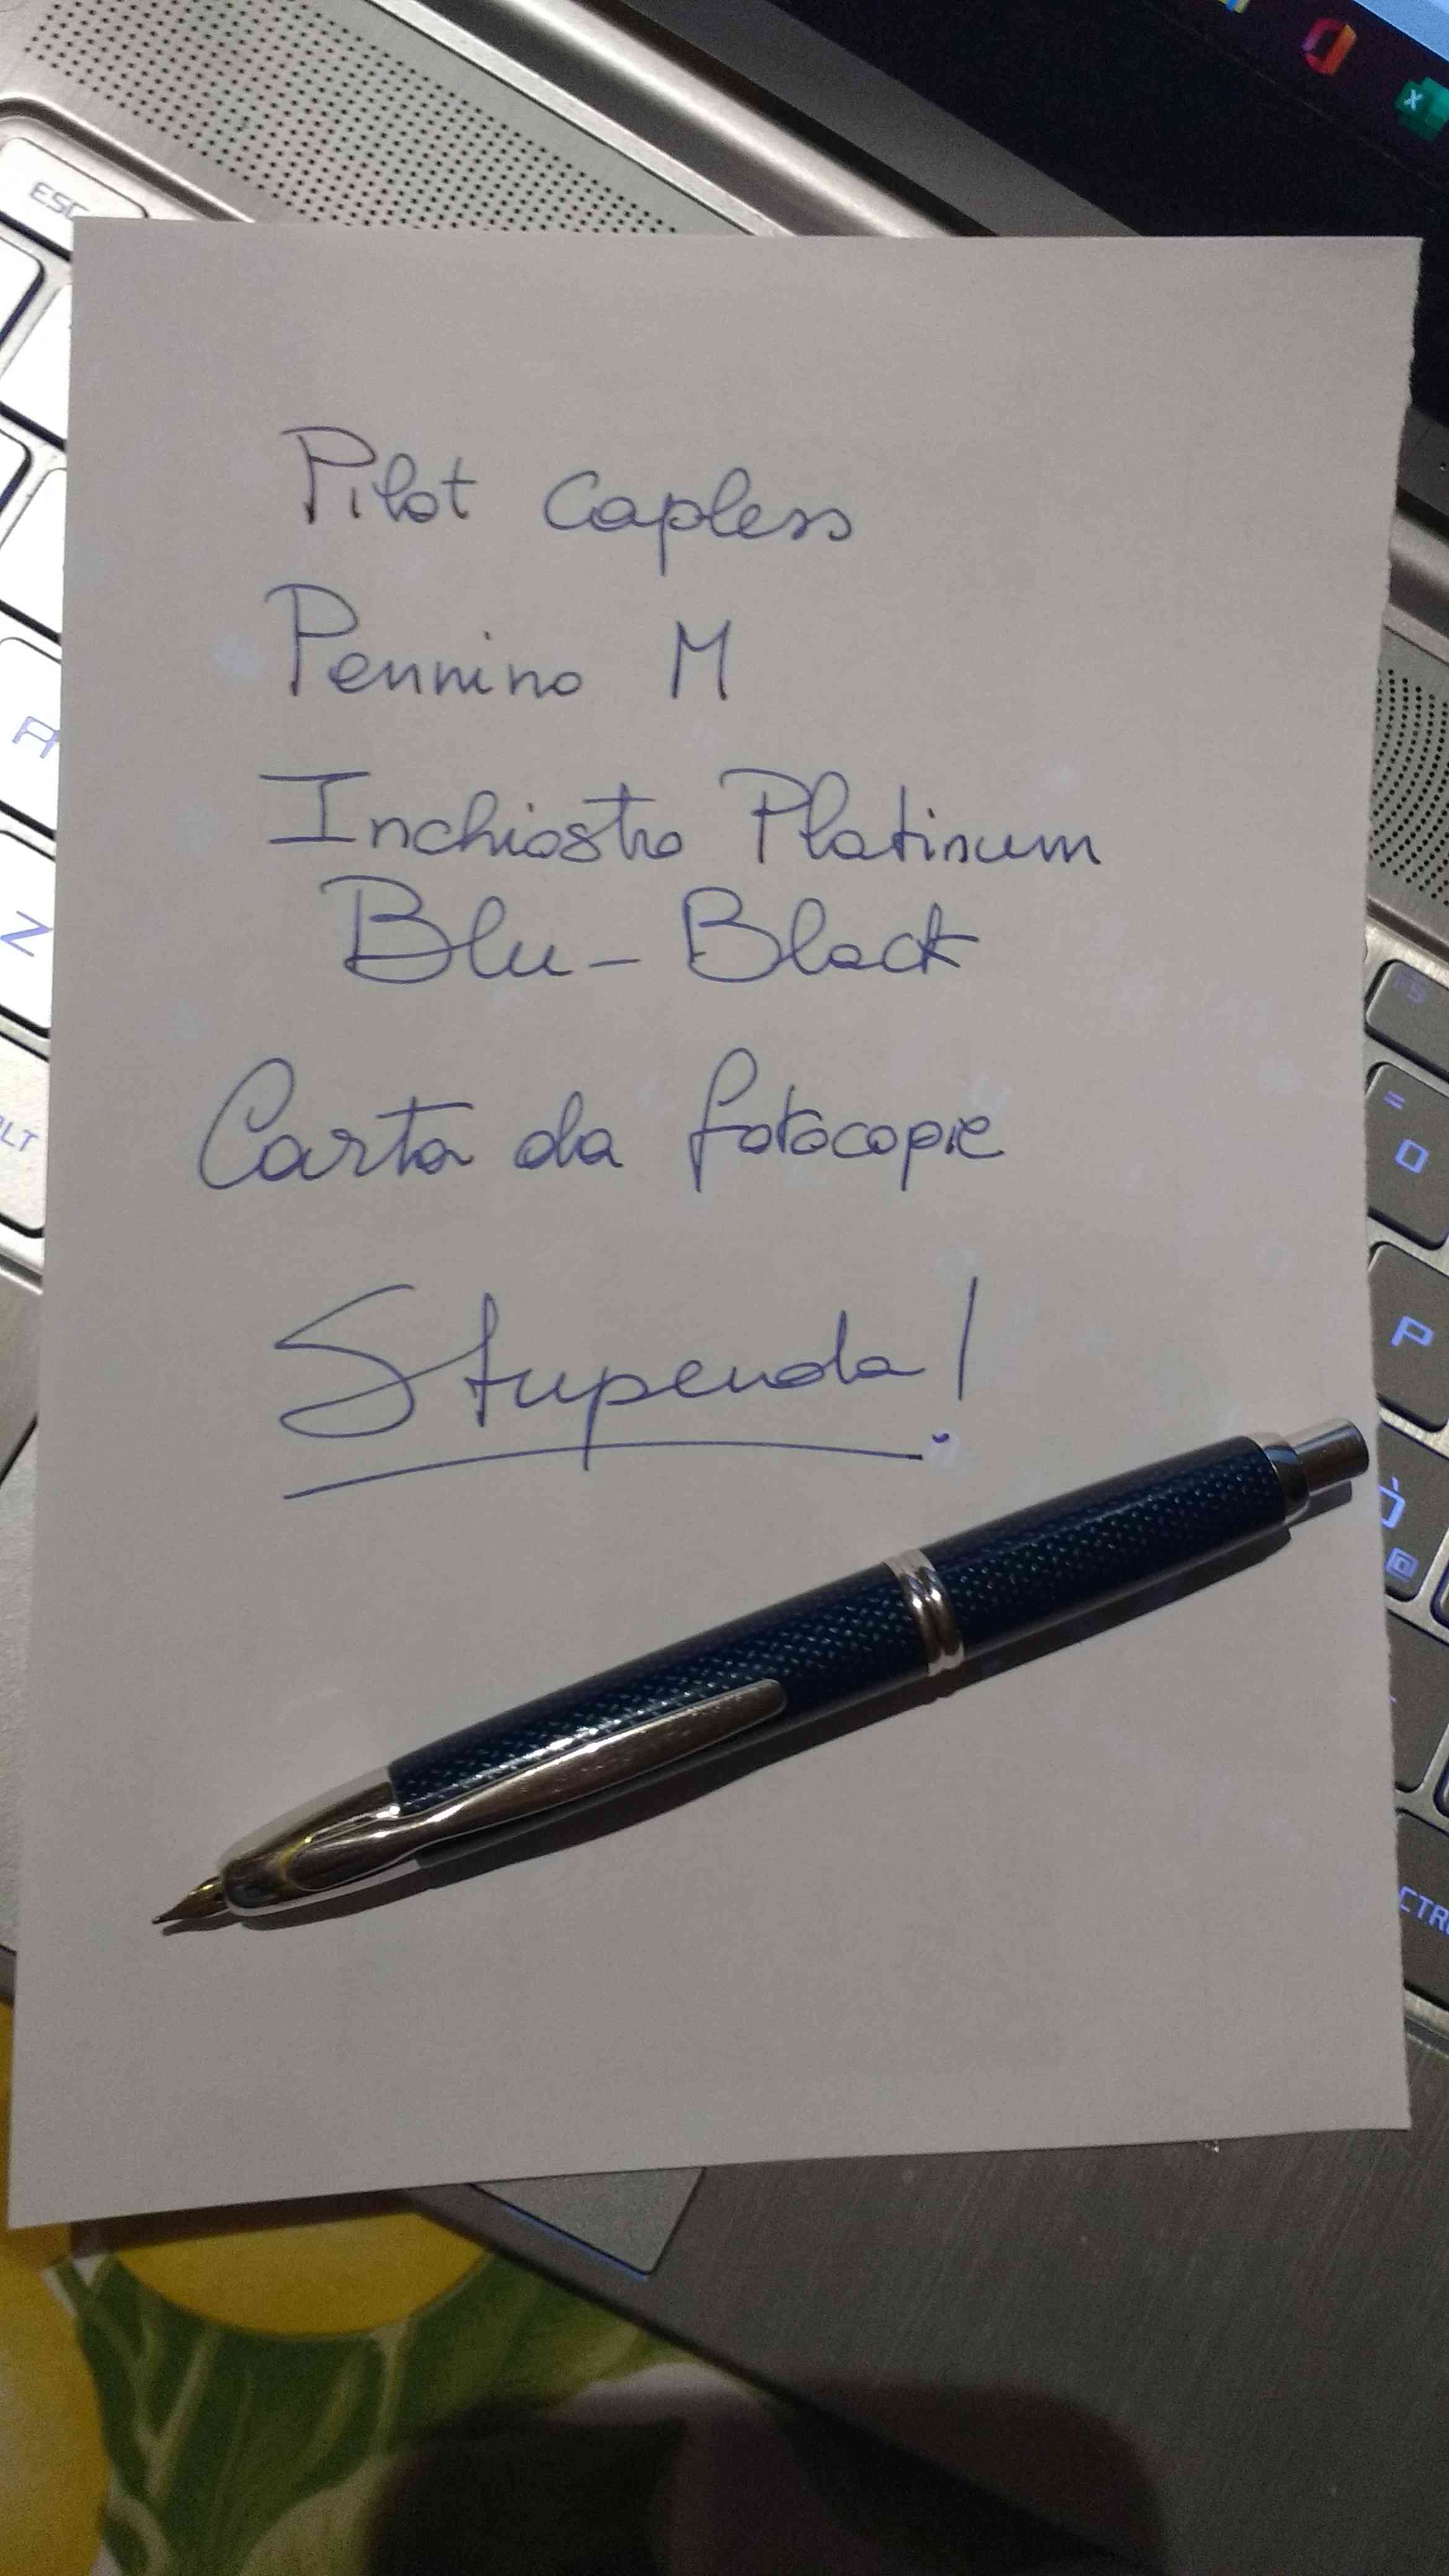 ESC
Pilot Capless
Pennino M
Inchiostro Platinum
Blu-Black
Carta da fotocopie
Stupenda!
A
Z
ALT
=
0
P
Ò
@
CTRL
X